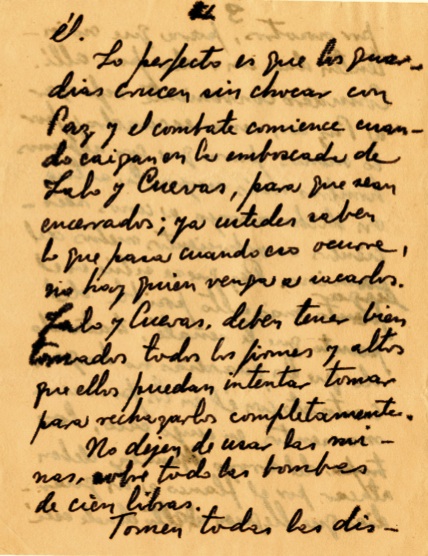 él.
Lo perfecto es que los guar-
dias crucen sin chocar con
Paz, y el combate comience cuan-
do caigan en la emboscada de
Lalo y Cuevas, para que sean
encerrados; ya ustedes saben
lo que pasa cuando eso ocurre,
no hay quien venga a sacarlos.
Lalo y Cuevas, deben tener bien
tomados todos los firmes y altos
que ellos puedan intentar tomar
para rechazarlos completamente.
No dejen de usar las mi-
nas, sobre todo las bombas
de cien libras.
Tomen todas las dis-